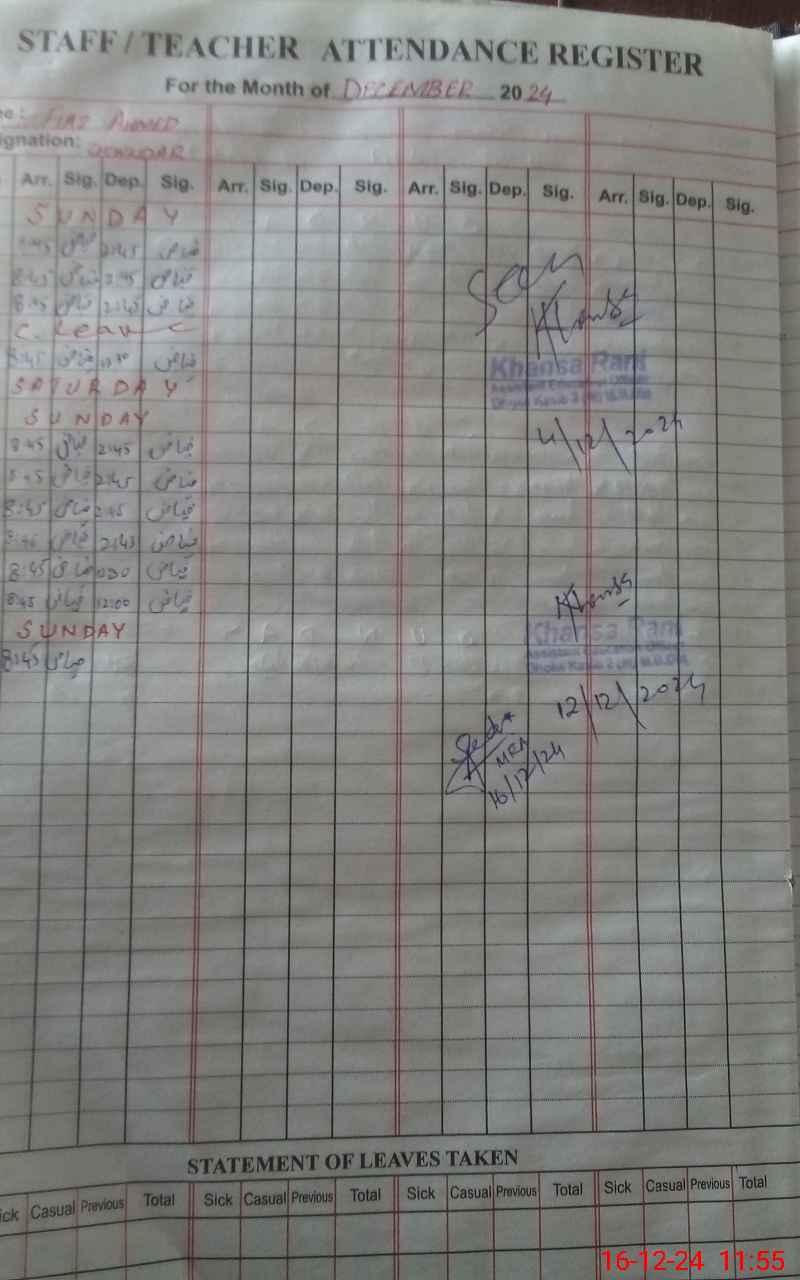 STAFF / TEACHER ATTENDANCE REGISTER
For the Month of DECEMBER 2024
AHMED
ignation:
Arr. Sig. Dep. Sig. Arr. Sig. Dep. Sig. Arr. Sig. Dep. Sig. Arr. Sig. Dep. Sig.
SUNDAY
8:45 فیاض 2:45 فیاض
8:45 فیاض 2:45 فیاض
8:45 فیاض 2:45 فیاض
Seen
Khansa
C. Leave
8:45 فیاض فیاض
Khansa Rani
Assistant Education Officer
SATURDAY
SUNDAY
4/12/2024
8:45 فیاض 2:45 فیاض
8:45 فیاض 2:45 فیاض
8:45 فیاض 2:45 فیاض
فیاض 2:45 فیاض
8:45 فیاض فیاض
8:45 فیاض 12:00 فیاض
Khansa
SUNDAY
Khansa Rani
Assistant Education Officer
8:45 فیاض
12/12/2024
MEA
16/12/24
STATEMENT OF LEAVES TAKEN
ick Casual Previous Total Sick Casual Previous Total Sick Casual Previous Total Sick Casual Previous Total
16-12-24 11:55